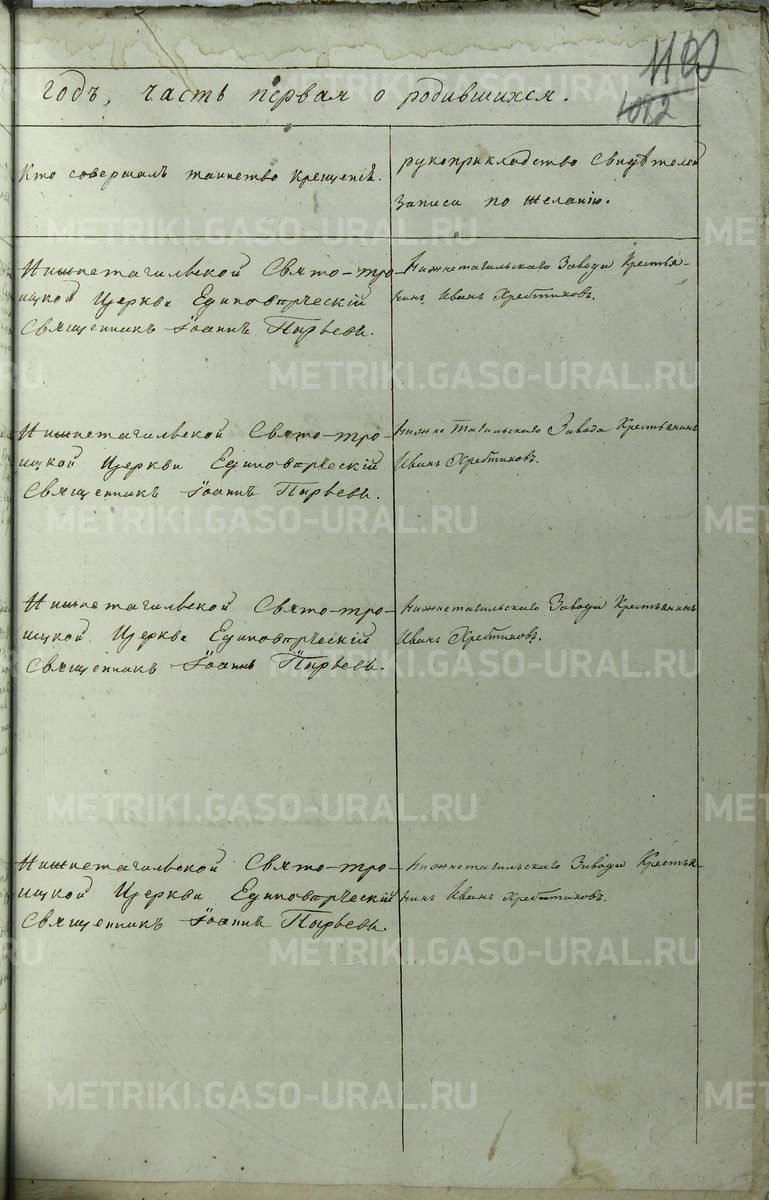 1100
1092
годъ, часть первая о родившихся.
Кто совершалъ таинство крещенiя.
рукоприкладство свидѣтелей
записи по желанiю.
Нижнетагильской Свято-тро-
ицкой Церкви Единовѣрческiй
Священникъ Iоаннъ Пырьевъ.
Нижнетагильскаго Завода Крестья-
нинъ Иванъ Хребтиковъ.
Нижнетагильской Свято-тро-
ицкой Церкви Единовѣрческiй
Священникъ Iоаннъ Пырьевъ.
Нижне Тагильскаго Завода Крестьянинъ
Иванъ Хребтиковъ.
Нижнетагильской Свято-тро-
ицкой Церкви Единовѣрческiй
Священникъ Iоаннъ Пырьевъ.
Нижнетагильскаго Завода Крестьянинъ
Иванъ Хребтиковъ.
Нижнетагильской Свято-тро-
ицкой Церкви Единовѣрческiй
Священникъ Iоаннъ Пырьевъ.
Нижнетагильскаго Завода Крестья-
нинъ Иванъ Хребтиковъ.
METRIKI.GASO-URAL.RU